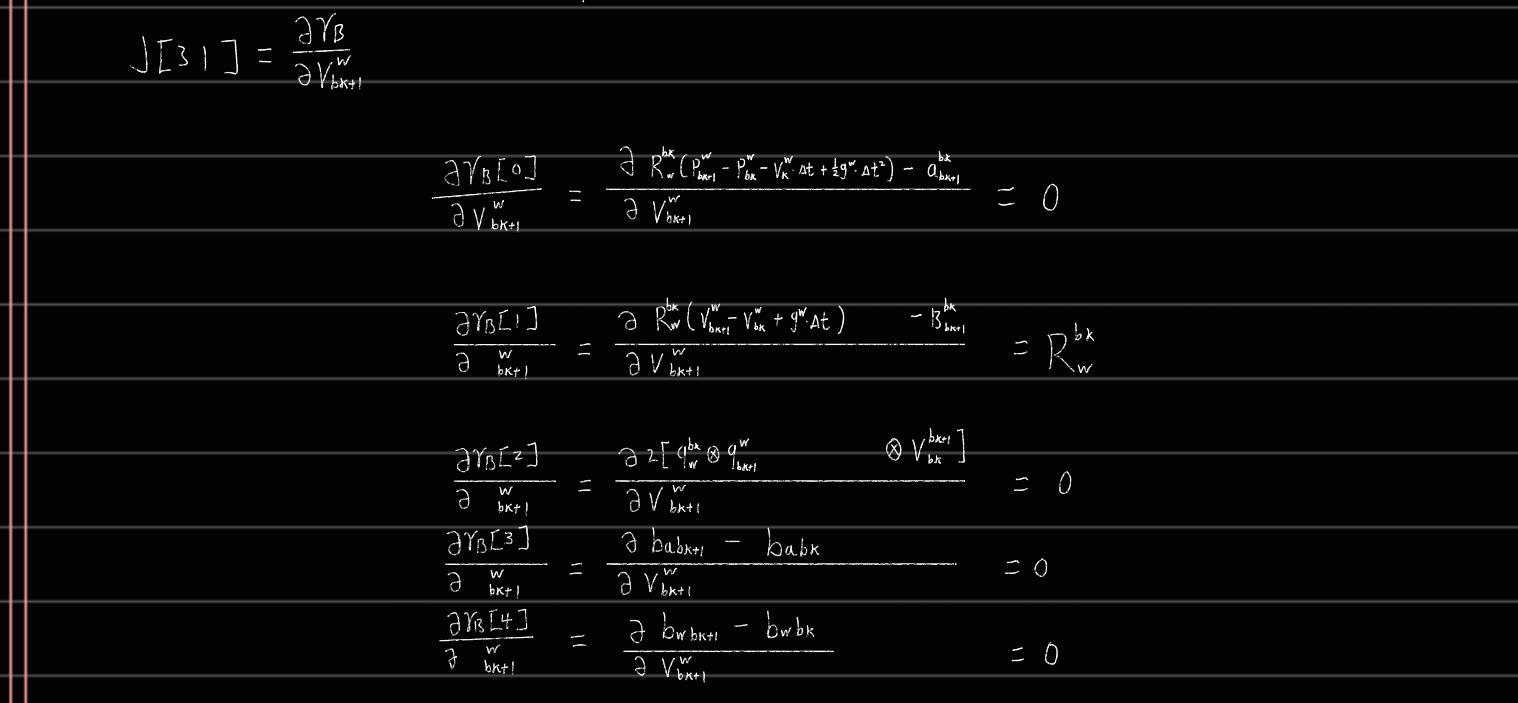 J[31] = ∂γ_B / ∂V^w_{bk+1}
∂γ_B[0] / ∂V^w_{bk+1} = ∂ R^{bk}_w (P^w_{bk+1} - P^w_{bk} - V^w_k · Δt + ½g^w · Δt²) - a^{bk}_{bk+1} / ∂V^w_{bk+1} = 0
∂γ_B[1] / ∂ ^w_{bk+1} = ∂ R^{bk}_w (V^w_{bk+1} - V^w_{bk} + g^w · Δt) - B^{bk}_{bk+1} / ∂V^w_{bk+1} = R^{bk}_w
∂γ_B[2] / ∂ ^w_{bk+1} = ∂ 2[q^{bk}_w ⊗ q^w_{bk+1} ⊗ V^{bk+1}_{bk}] / ∂V^w_{bk+1} = 0
∂γ_B[3] / ∂ ^w_{bk+1} = ∂ b_{abk+1} - b_{abk} / ∂V^w_{bk+1} = 0
∂γ_B[4] / ∂ ^w_{bk+1} = ∂ b_{wbk+1} - b_{wbk} / ∂V^w_{bk+1} = 0